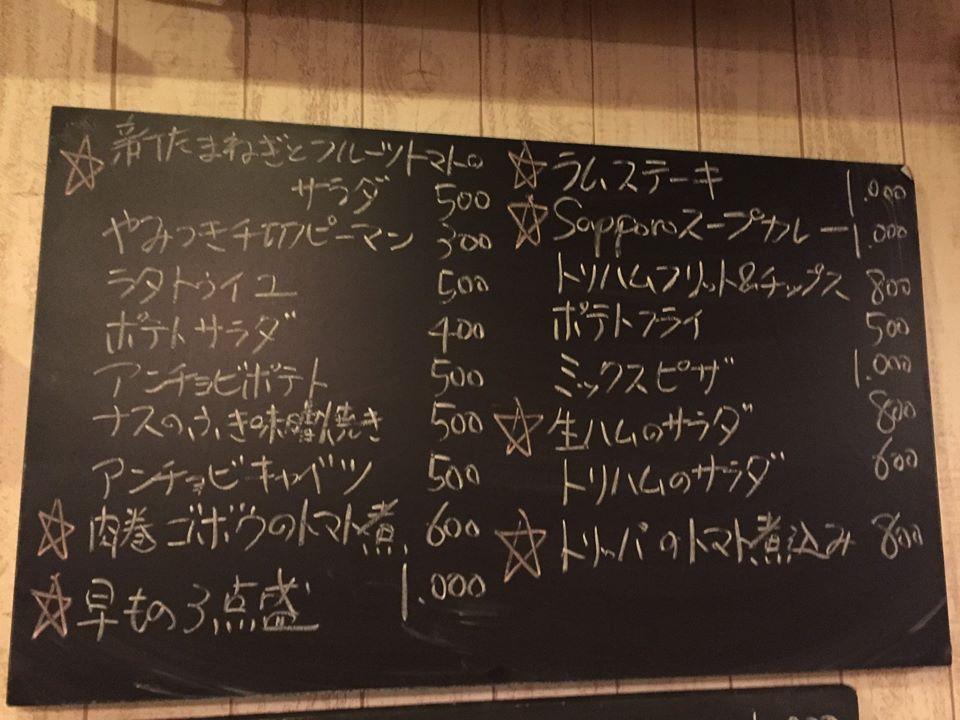 ☆ 新たまねぎとフルーツトマトの
サラダ 500
やみつきチーズピーマン 300
ラタトゥイユ 500
ポテトサラダ 400
アンチョビポテト 500
ナスのふき味噌焼き 500
アンチョビキャベツ 500
☆ 肉巻ゴボウのトマト煮 600
☆ 早もの3点盛 1.000
☆ ラムステーキ 1.000
☆ Sapporoスープカレー 1.000
トリハムフリット&チップス 800
ポテトフライ 500
ミックスピザ 1.000
☆ 生ハムのサラダ 800
トリハムのサラダ 600
☆ トリッパのトマト煮込み 800